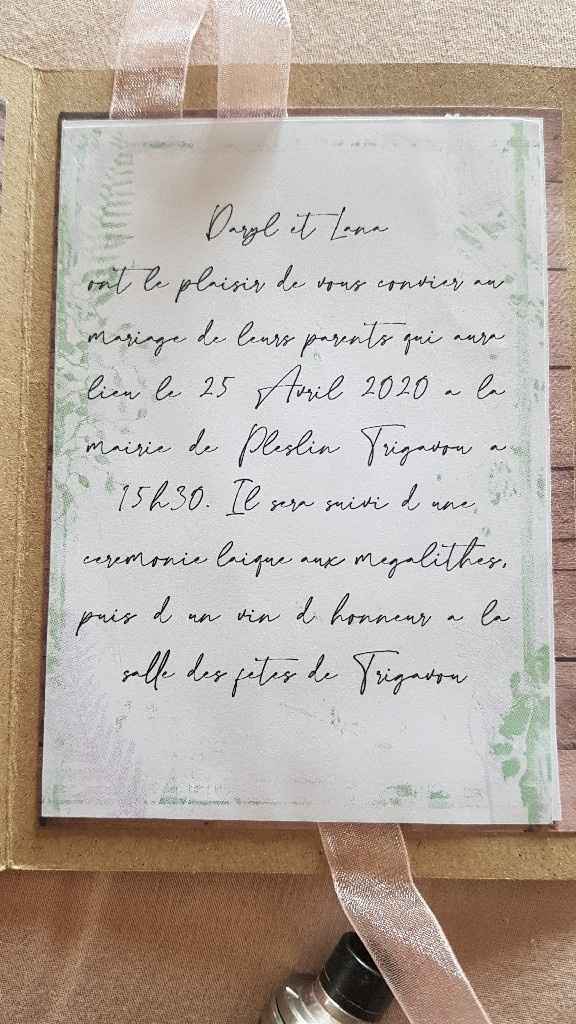 Daryl et Lana
ont le plaisir de vous convier au
mariage de leurs parents qui aura
lieu le 25 Avril 2020 a la
mairie de Pleslin Trigavou a
15h30. Il sera suivi d une
ceremonie laique aux megalithes,
puis d un vin d honneur a la
salle des fêtes de Trigavou